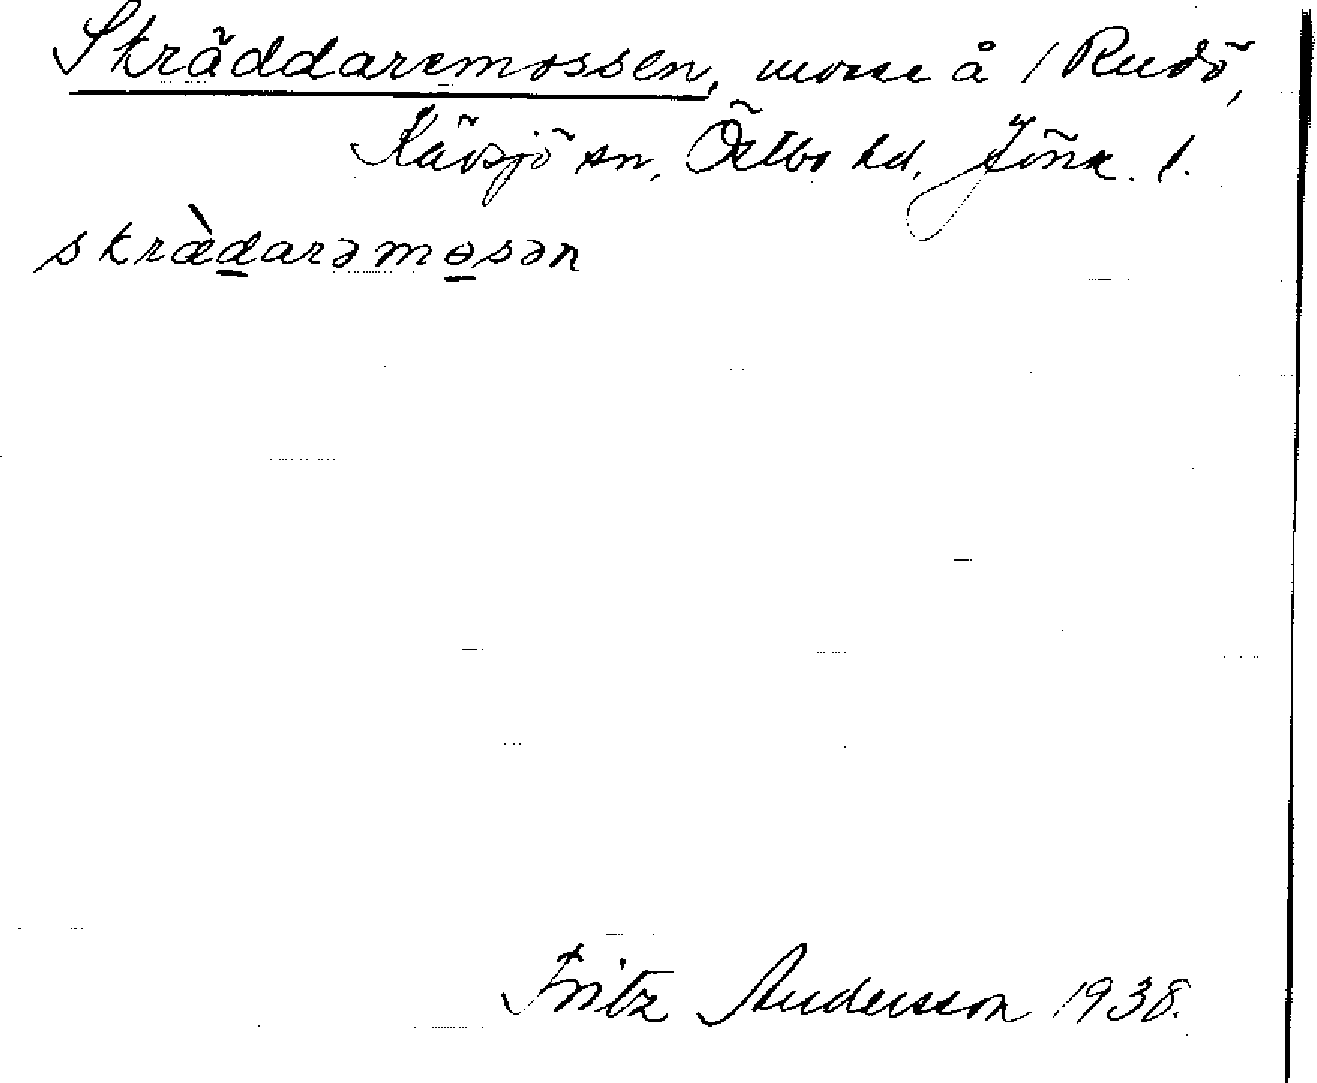 Skräddaremossen, mosse å 1 Rudö,
Kävsjö sn, Östbo hd, Jönk. l.
skræ̀darəmɵsən
Fritz Andersson 1938.